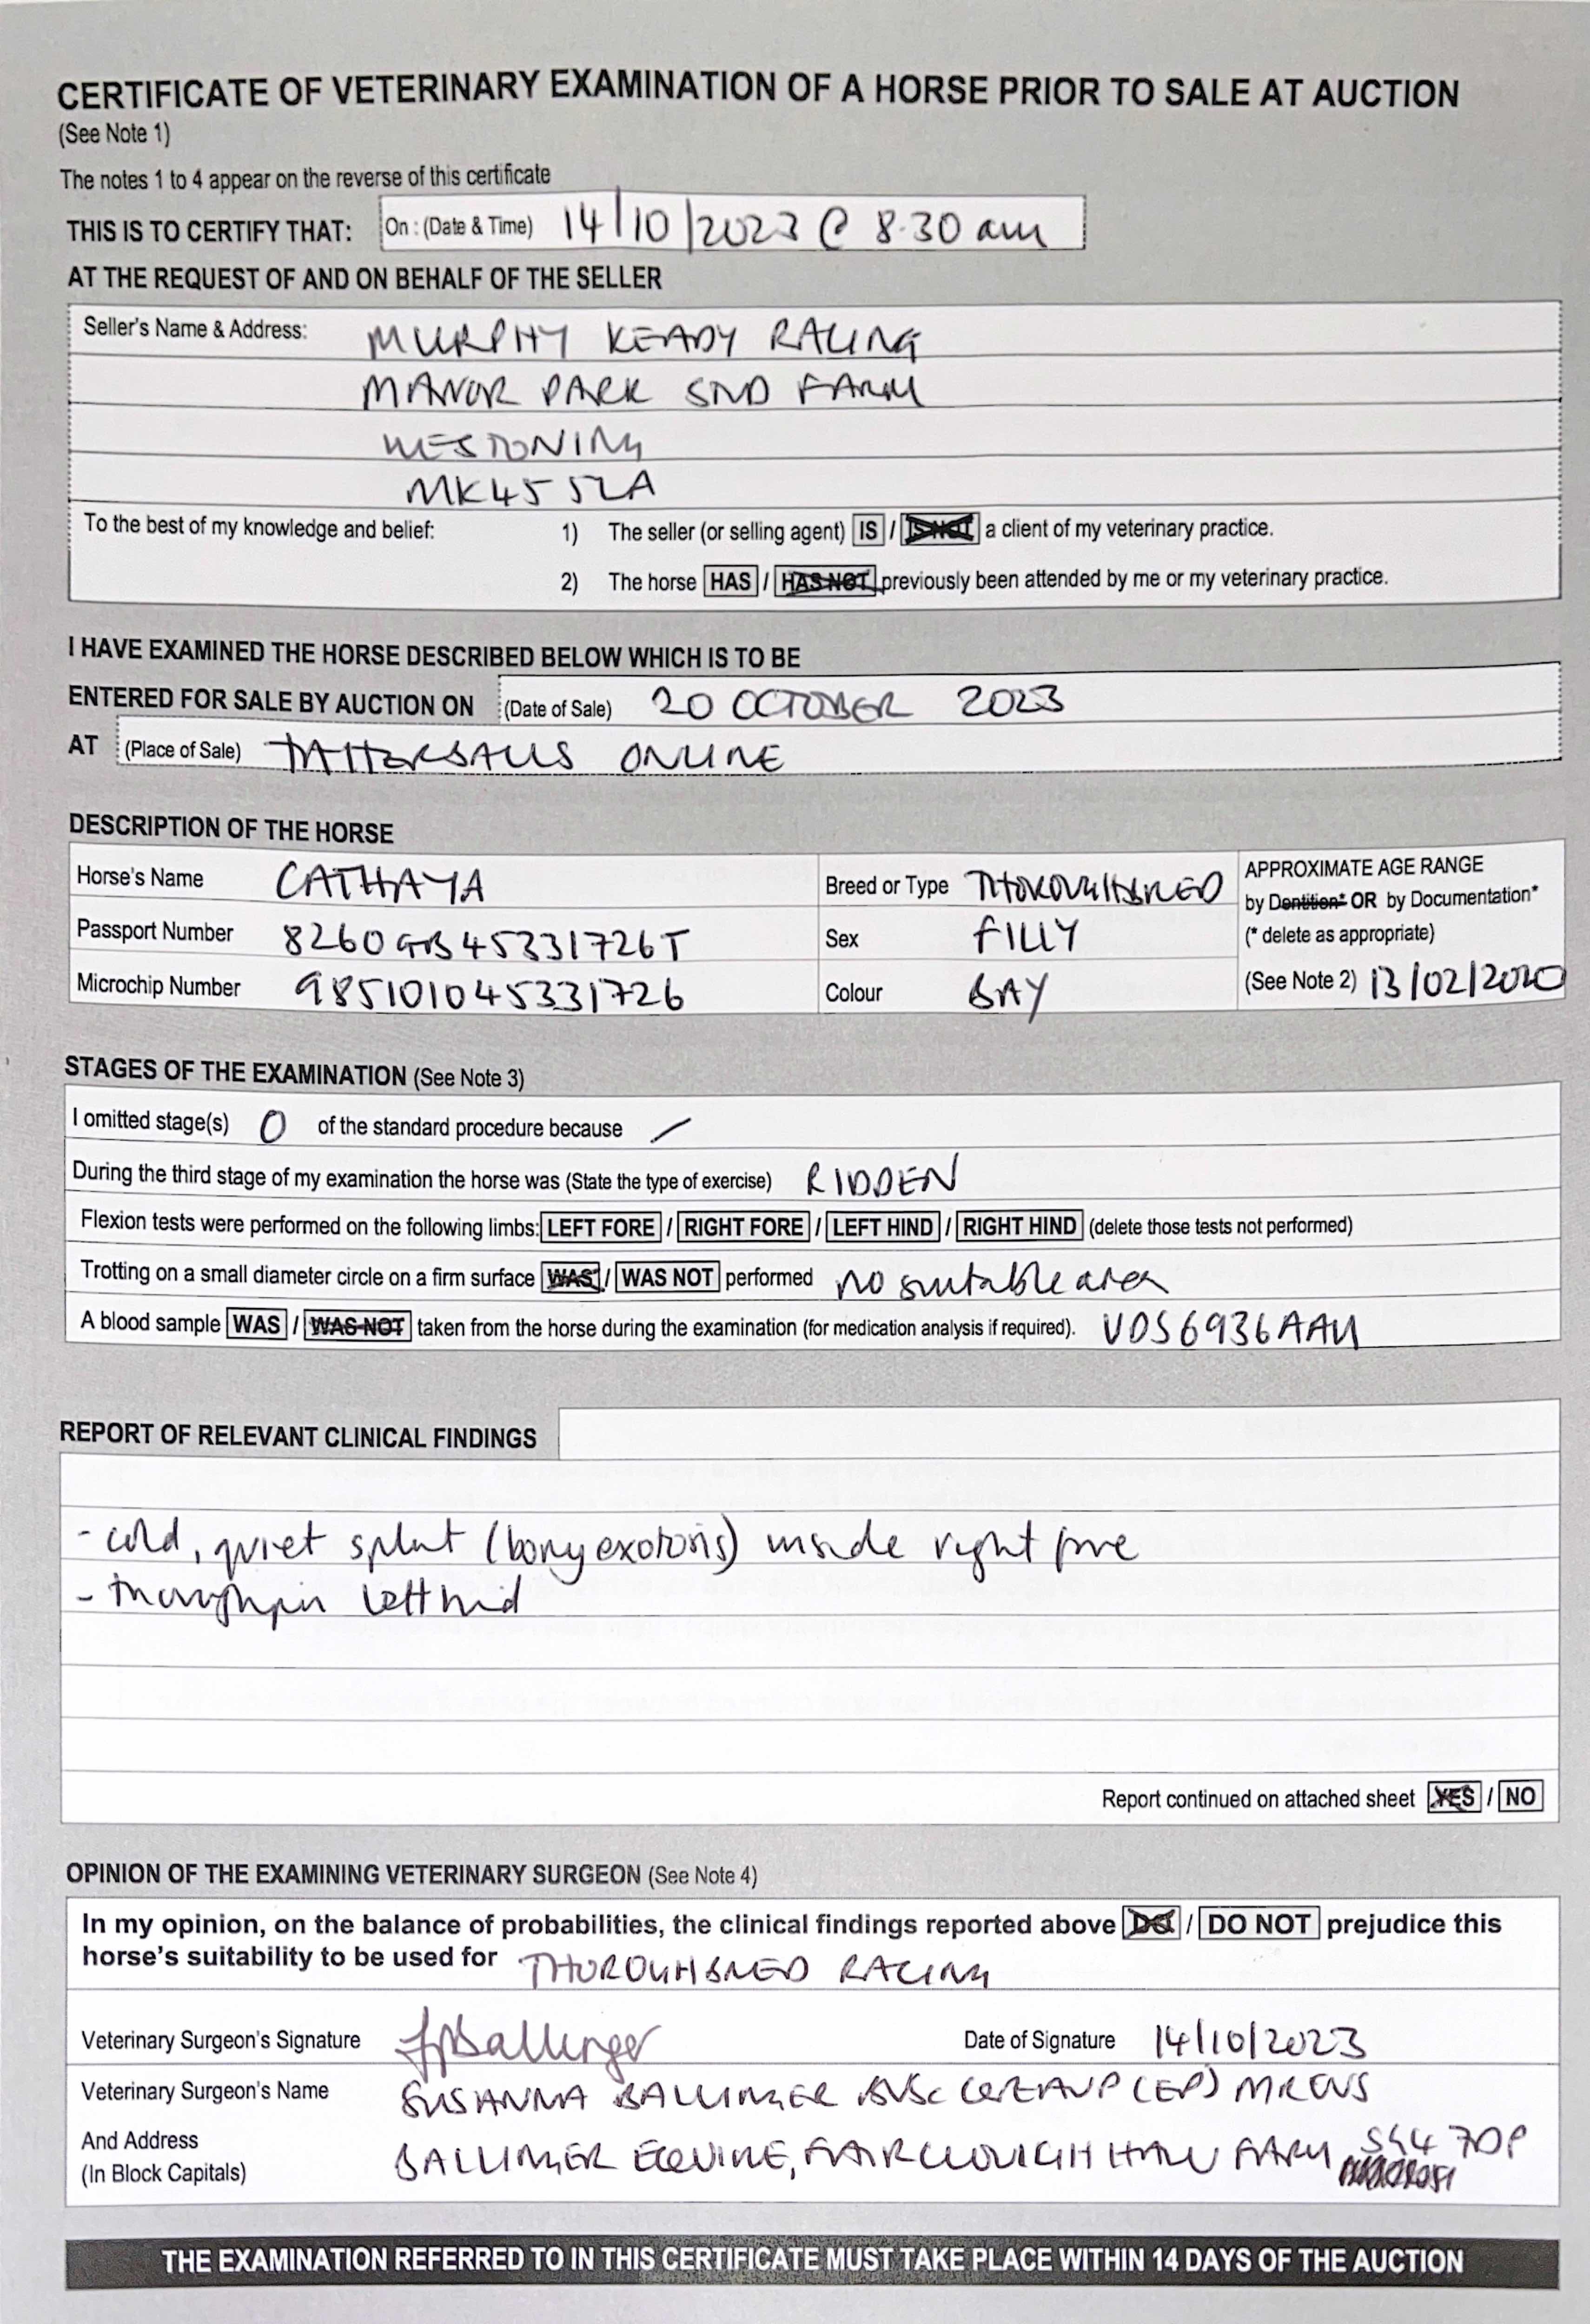 CERTIFICATE OF VETERINARY EXAMINATION OF A HORSE PRIOR TO SALE AT AUCTION
(See Note 1)
The notes 1 to 4 appear on the reverse of this certificate
THIS IS TO CERTIFY THAT: On : (Date & Time) 14/10/2023 @ 8.30 am
AT THE REQUEST OF AND ON BEHALF OF THE SELLER
Seller's Name & Address: MURPHY KEADY RACING
MANOR PARK STUD FARM
WESTONING
MK45 5LA
To the best of my knowledge and belief: 1) The seller (or selling agent) IS / IS NOT a client of my veterinary practice.
2) The horse HAS / HAS NOT previously been attended by me or my veterinary practice.
I HAVE EXAMINED THE HORSE DESCRIBED BELOW WHICH IS TO BE
ENTERED FOR SALE BY AUCTION ON (Date of Sale) 20 OCTOBER 2023
AT (Place of Sale) TATTERSALLS ONLINE
DESCRIPTION OF THE HORSE
Horse's Name CATHAYA Breed or Type THOROUGHBRED APPROXIMATE AGE RANGE
by Dentition* OR by Documentation*
Passport Number 8260GB45331726T Sex FILLY (* delete as appropriate)
Microchip Number 985101045331726 Colour BAY (See Note 2) 13/02/2020
STAGES OF THE EXAMINATION (See Note 3)
I omitted stage(s) 0 of the standard procedure because /
During the third stage of my examination the horse was (State the type of exercise) RIDDEN
Flexion tests were performed on the following limbs: LEFT FORE / RIGHT FORE / LEFT HIND / RIGHT HIND (delete those tests not performed)
Trotting on a small diameter circle on a firm surface WAS / WAS NOT performed no suitable area
A blood sample WAS / WAS NOT taken from the horse during the examination (for medication analysis if required). VDS6936AAU
REPORT OF RELEVANT CLINICAL FINDINGS
- cold, quiet splint (bony exotosis) inside right fore
- thoroughpin left hind
Report continued on attached sheet YES / NO
OPINION OF THE EXAMINING VETERINARY SURGEON (See Note 4)
In my opinion, on the balance of probabilities, the clinical findings reported above DO / DO NOT prejudice this
horse's suitability to be used for THOROUGHBRED RACING
Veterinary Surgeon's Signature Ballinger Date of Signature 14/10/2023
Veterinary Surgeon's Name SUSANNA BALLINGER BVSc CertAVP (EP) MRCVS
And Address
(In Block Capitals) BALLINGER EQUINE, FAIRCLOUGH HALL FARM SG4 7DP
THE EXAMINATION REFERRED TO IN THIS CERTIFICATE MUST TAKE PLACE WITHIN 14 DAYS OF THE AUCTION